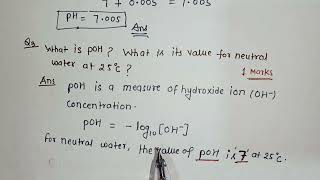 7 + 0.005 = 7.005
PH = 7.005
Ans
Q3 What is pOH? What is its value for neutral
water at 25°C?
1 Marks
Ans pOH is a measure of hydroxide ion (OH⁻)
Concentration.
pOH = -log₁₀[OH⁻]
for neutral water, the value of pOH is '7' at 25°C.